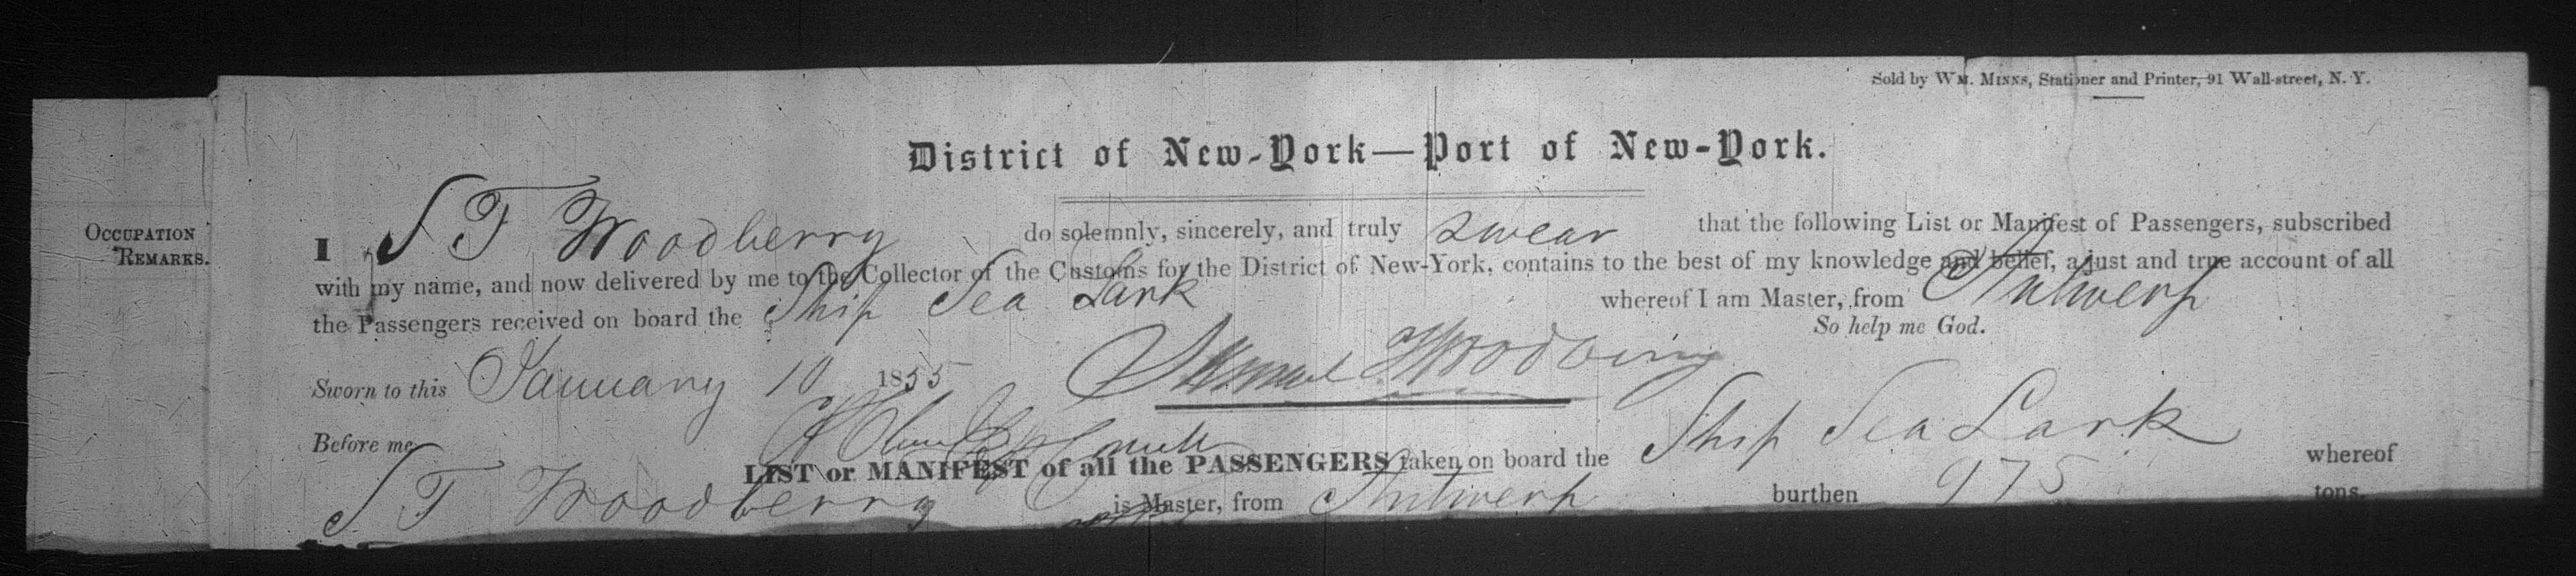 Sold by WM. MINNS, Stationer and Printer, 91 Wall-street, N. Y.
District of New-York—Port of New-York.
OCCUPATION
REMARKS.
I S T Woodberry do solemnly, sincerely, and truly swear that the following List or Manifest of Passengers, subscribed
with my name, and now delivered by me to the Collector of the Customs for the District of New-York, contains to the best of my knowledge and belief, a just and true account of all
the Passengers received on board the Ship Sea Lark whereof I am Master, from Antwerp
So help me God.
Sworn to this January 10 1855
Before me
LIST or MANIFEST of all the PASSENGERS taken on board the Ship Sea Lark whereof
S T Woodberry is Master, from Antwerp burthen 975 tons.